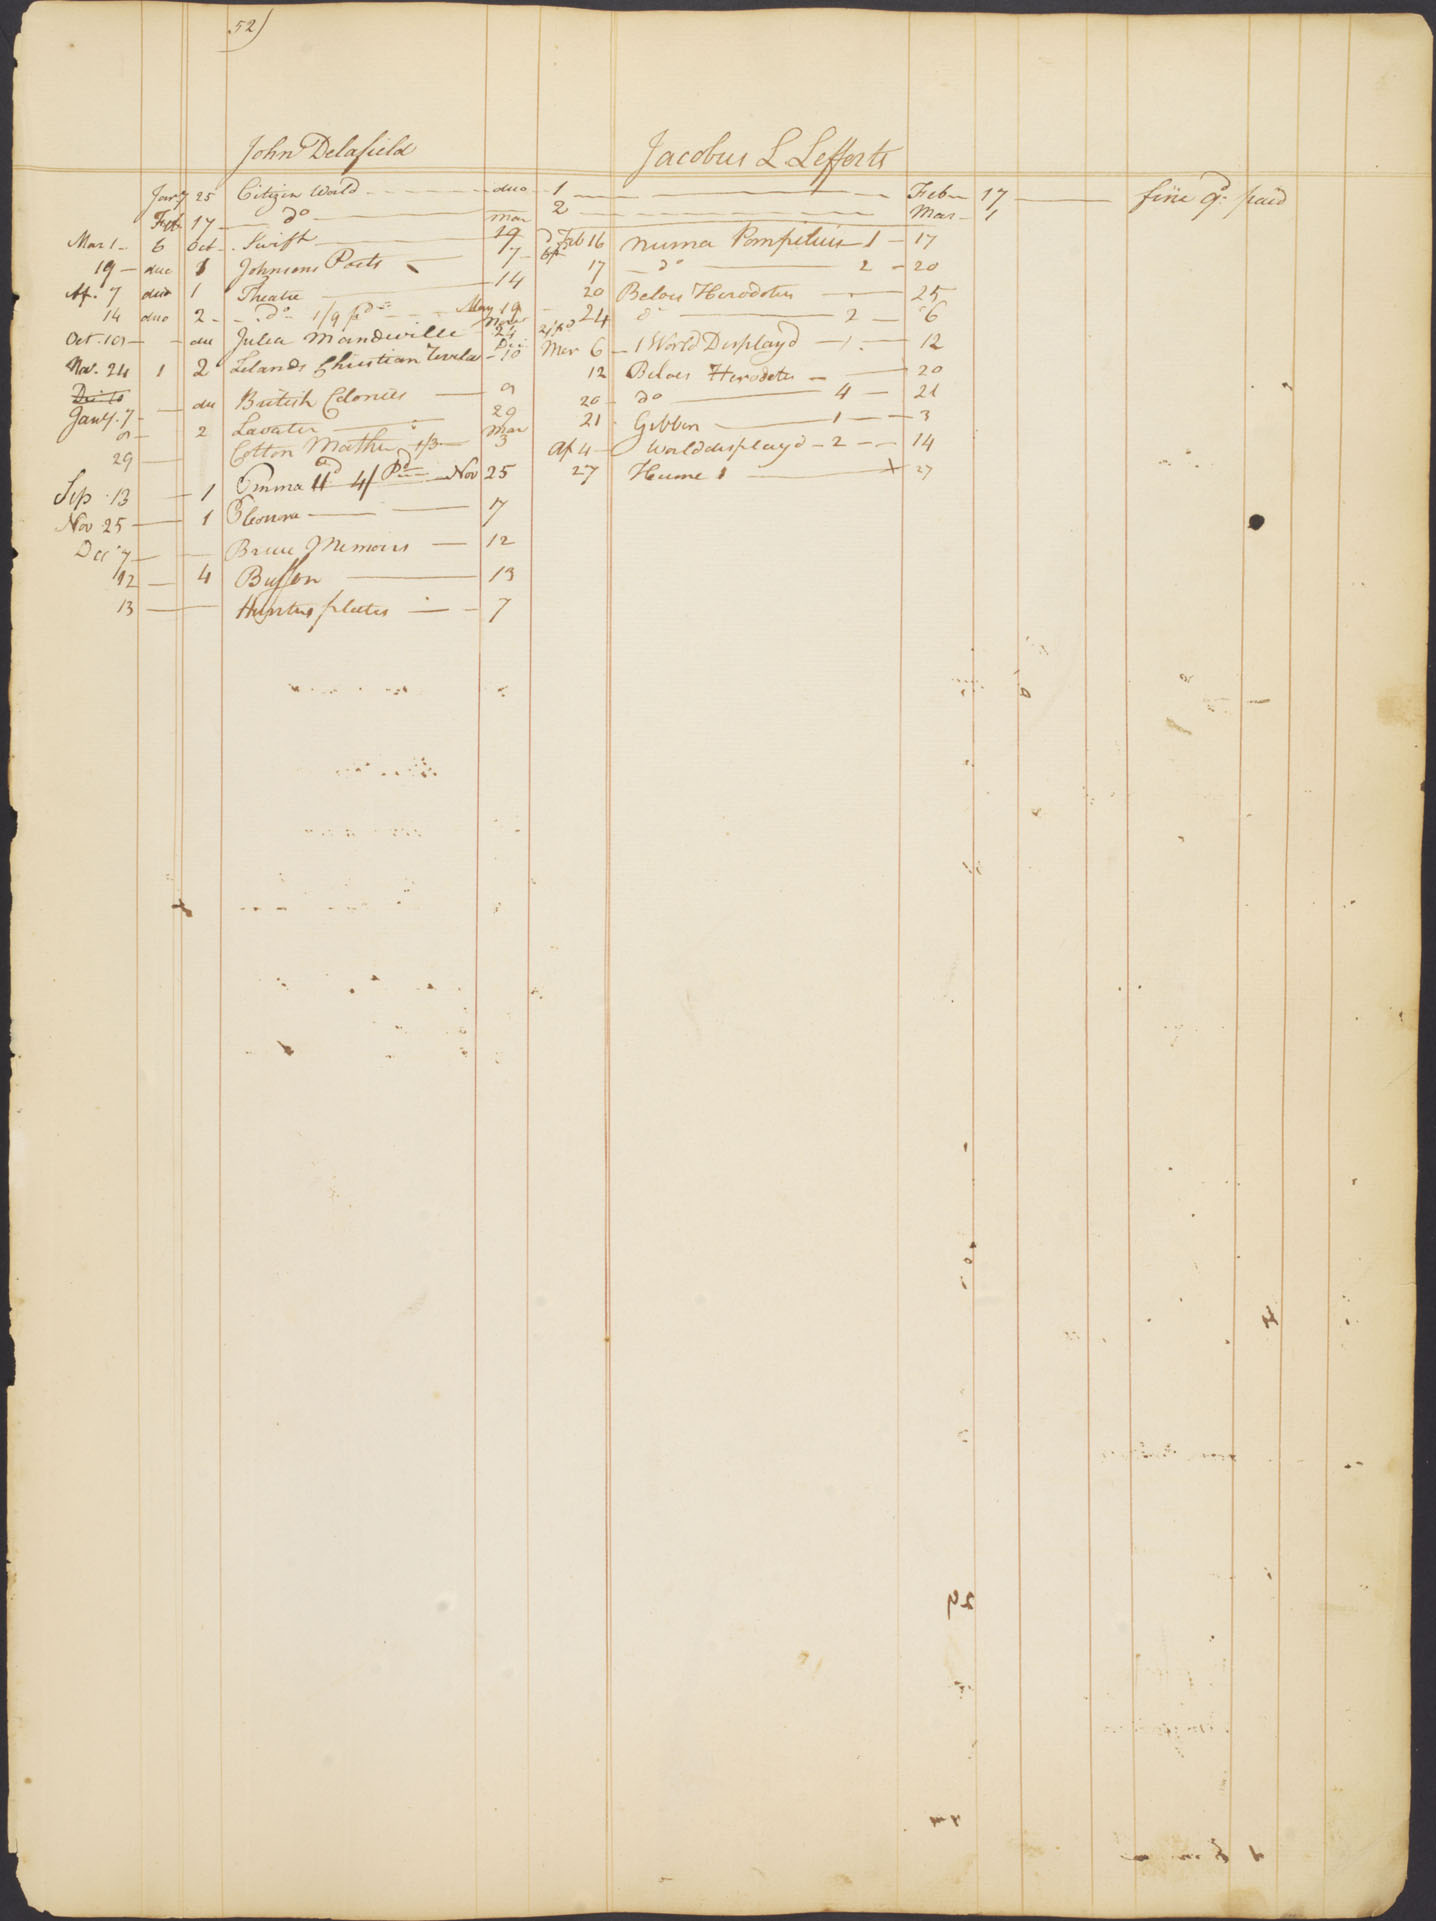 52)
John Delafield
Jany 25 Citizen World duo 1 Feb 17 fine 9d paid
Feb 17 do mar 2 Mar 1
Mar 1 6 Oct Swift 19
19 duo 1 Johnsons Poets 7
Ap. 7 duo 1 Theatre 14
14 duo 2 do 1/9 pd May 19
Oct. 19 du Julia Mandeville Nov 24
Nov. 24 1 2 Lelands Christian Revela Dec 10
Dec 10
Jany. 7 du British Colonies 9
9 2 Lavater 29
29 Cotton Mather 1/3 Mar 3
Sep. 13 1 Emma 4/ Pd Nov 25
Nov 25 1 7
Dec 7 Bruce Memoirs 12
12 4 Buffon 13
13 Hunters plates 7
Jacobus L Lefferts
Feb 16 Numa Pompilius 1 17
17 do 2 20
20 Beloes Herodotus 25
24 do 2 6
Mar 6 1 World Displayd 1 12
12 Beloes Herodotus 20
20 do 4 21
21 Gibbon 1 3
Ap 4 World displayd 2 14
27 Hume 1 27